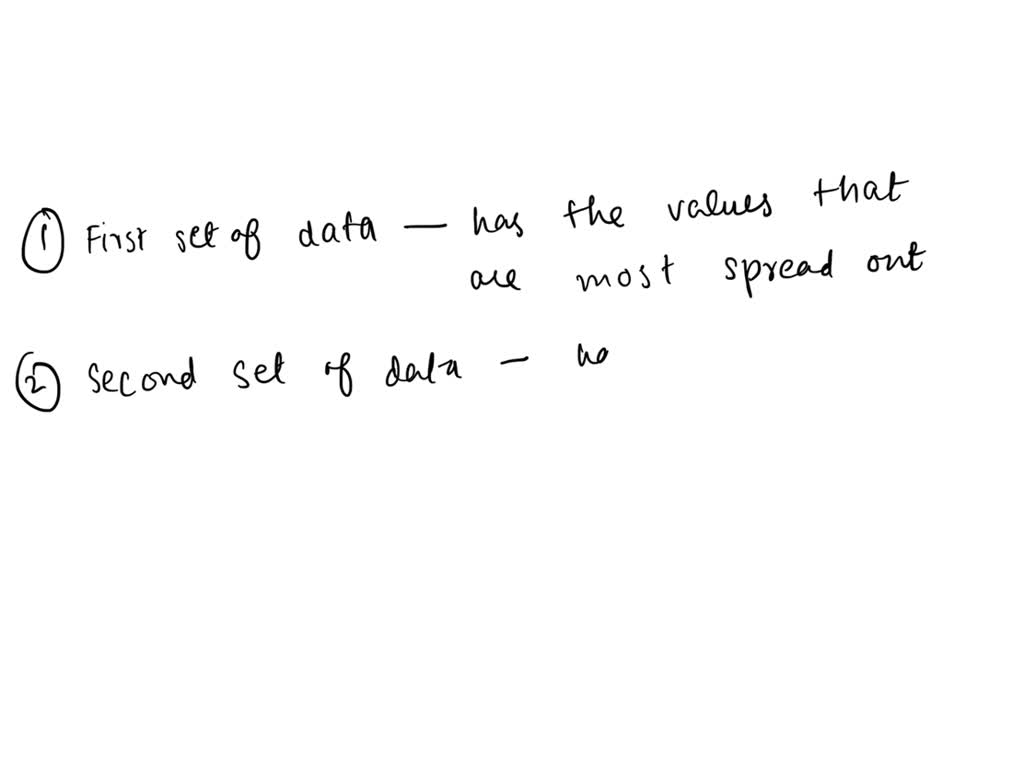 ① First set of data — has the values that
are most spread out
② Second set of data — ha